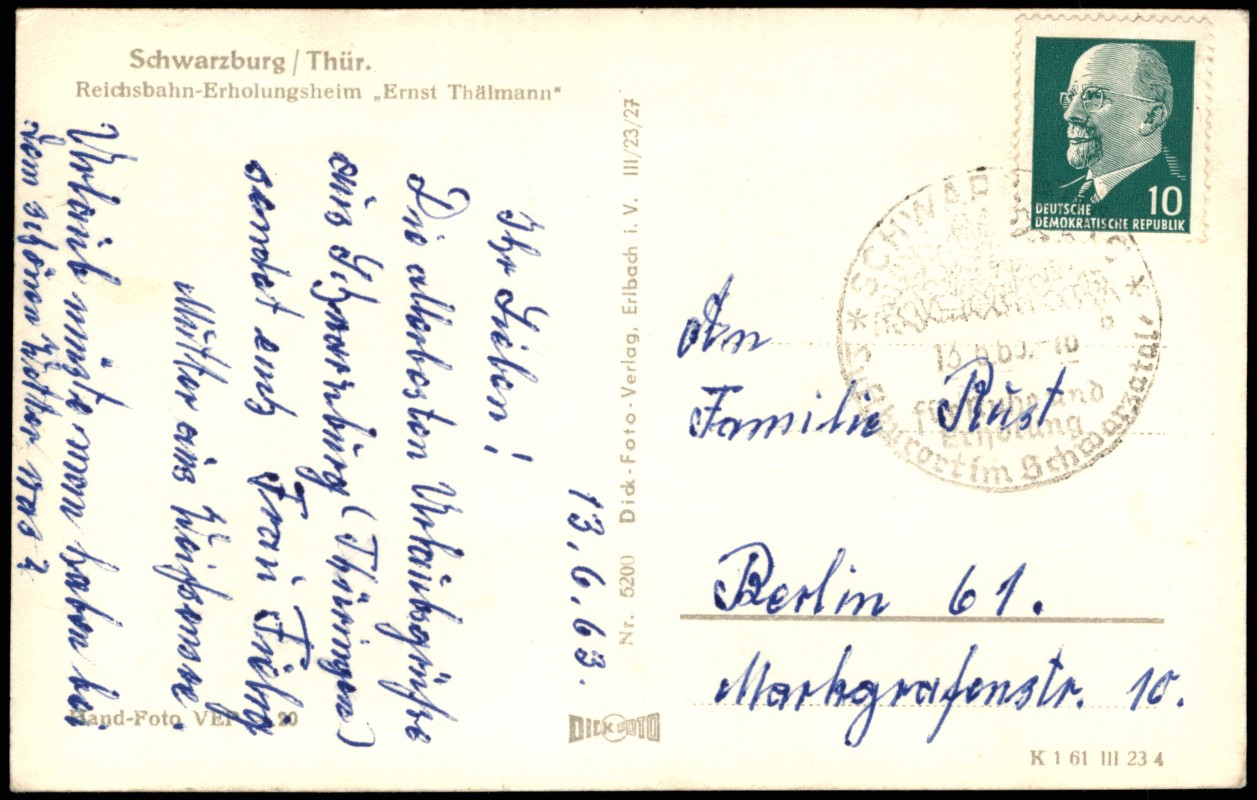 Schwarzburg / Thür.
Reichsbahn-Erholungsheim „Ernst Thälmann"
13. 6. 63.
Ihr Lieben!
Die allerbesten Urlaubsgrüße
aus Schwarzburg (Thüringen)
sendet euch Frau
Mutter aus Weißensee.
Urlaub müßte man haben bei
dem schönen Wetter was?
Hand-Foto
Nr. 5200 Dick-Foto-Verlag, Erlbach i. V. III/23/27
DICK FOTO
10
DEUTSCHE
DEMOKRATISCHE REPUBLIK
13.6.63.-16
für Ruhe und
Erholung
im Schwarzatal
An
Familie Rust
Berlin 61.
Markgrafenstr. 10.
K 1 61 III 23 4